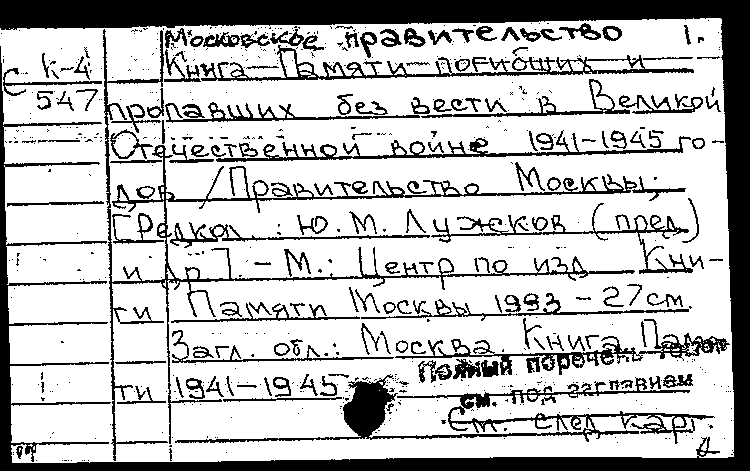 Московское правительство 1.
С К-4 Книга Памяти погибших и
547 пропавших без вести в Великой
Отечественной войне 1941-1945 го-
дов / Правительство Москвы;
[Редкол.: Ю. М. Лужков (пред.)
и др.]. - М.: Центр по изд. Кни-
ги Памяти Москвы, 1993 - 27 см.
Загл. обл.: Москва. Книга Памя-
ти 1941-1945
Полный перечень томов
см. под заглавием
См. след. карт.